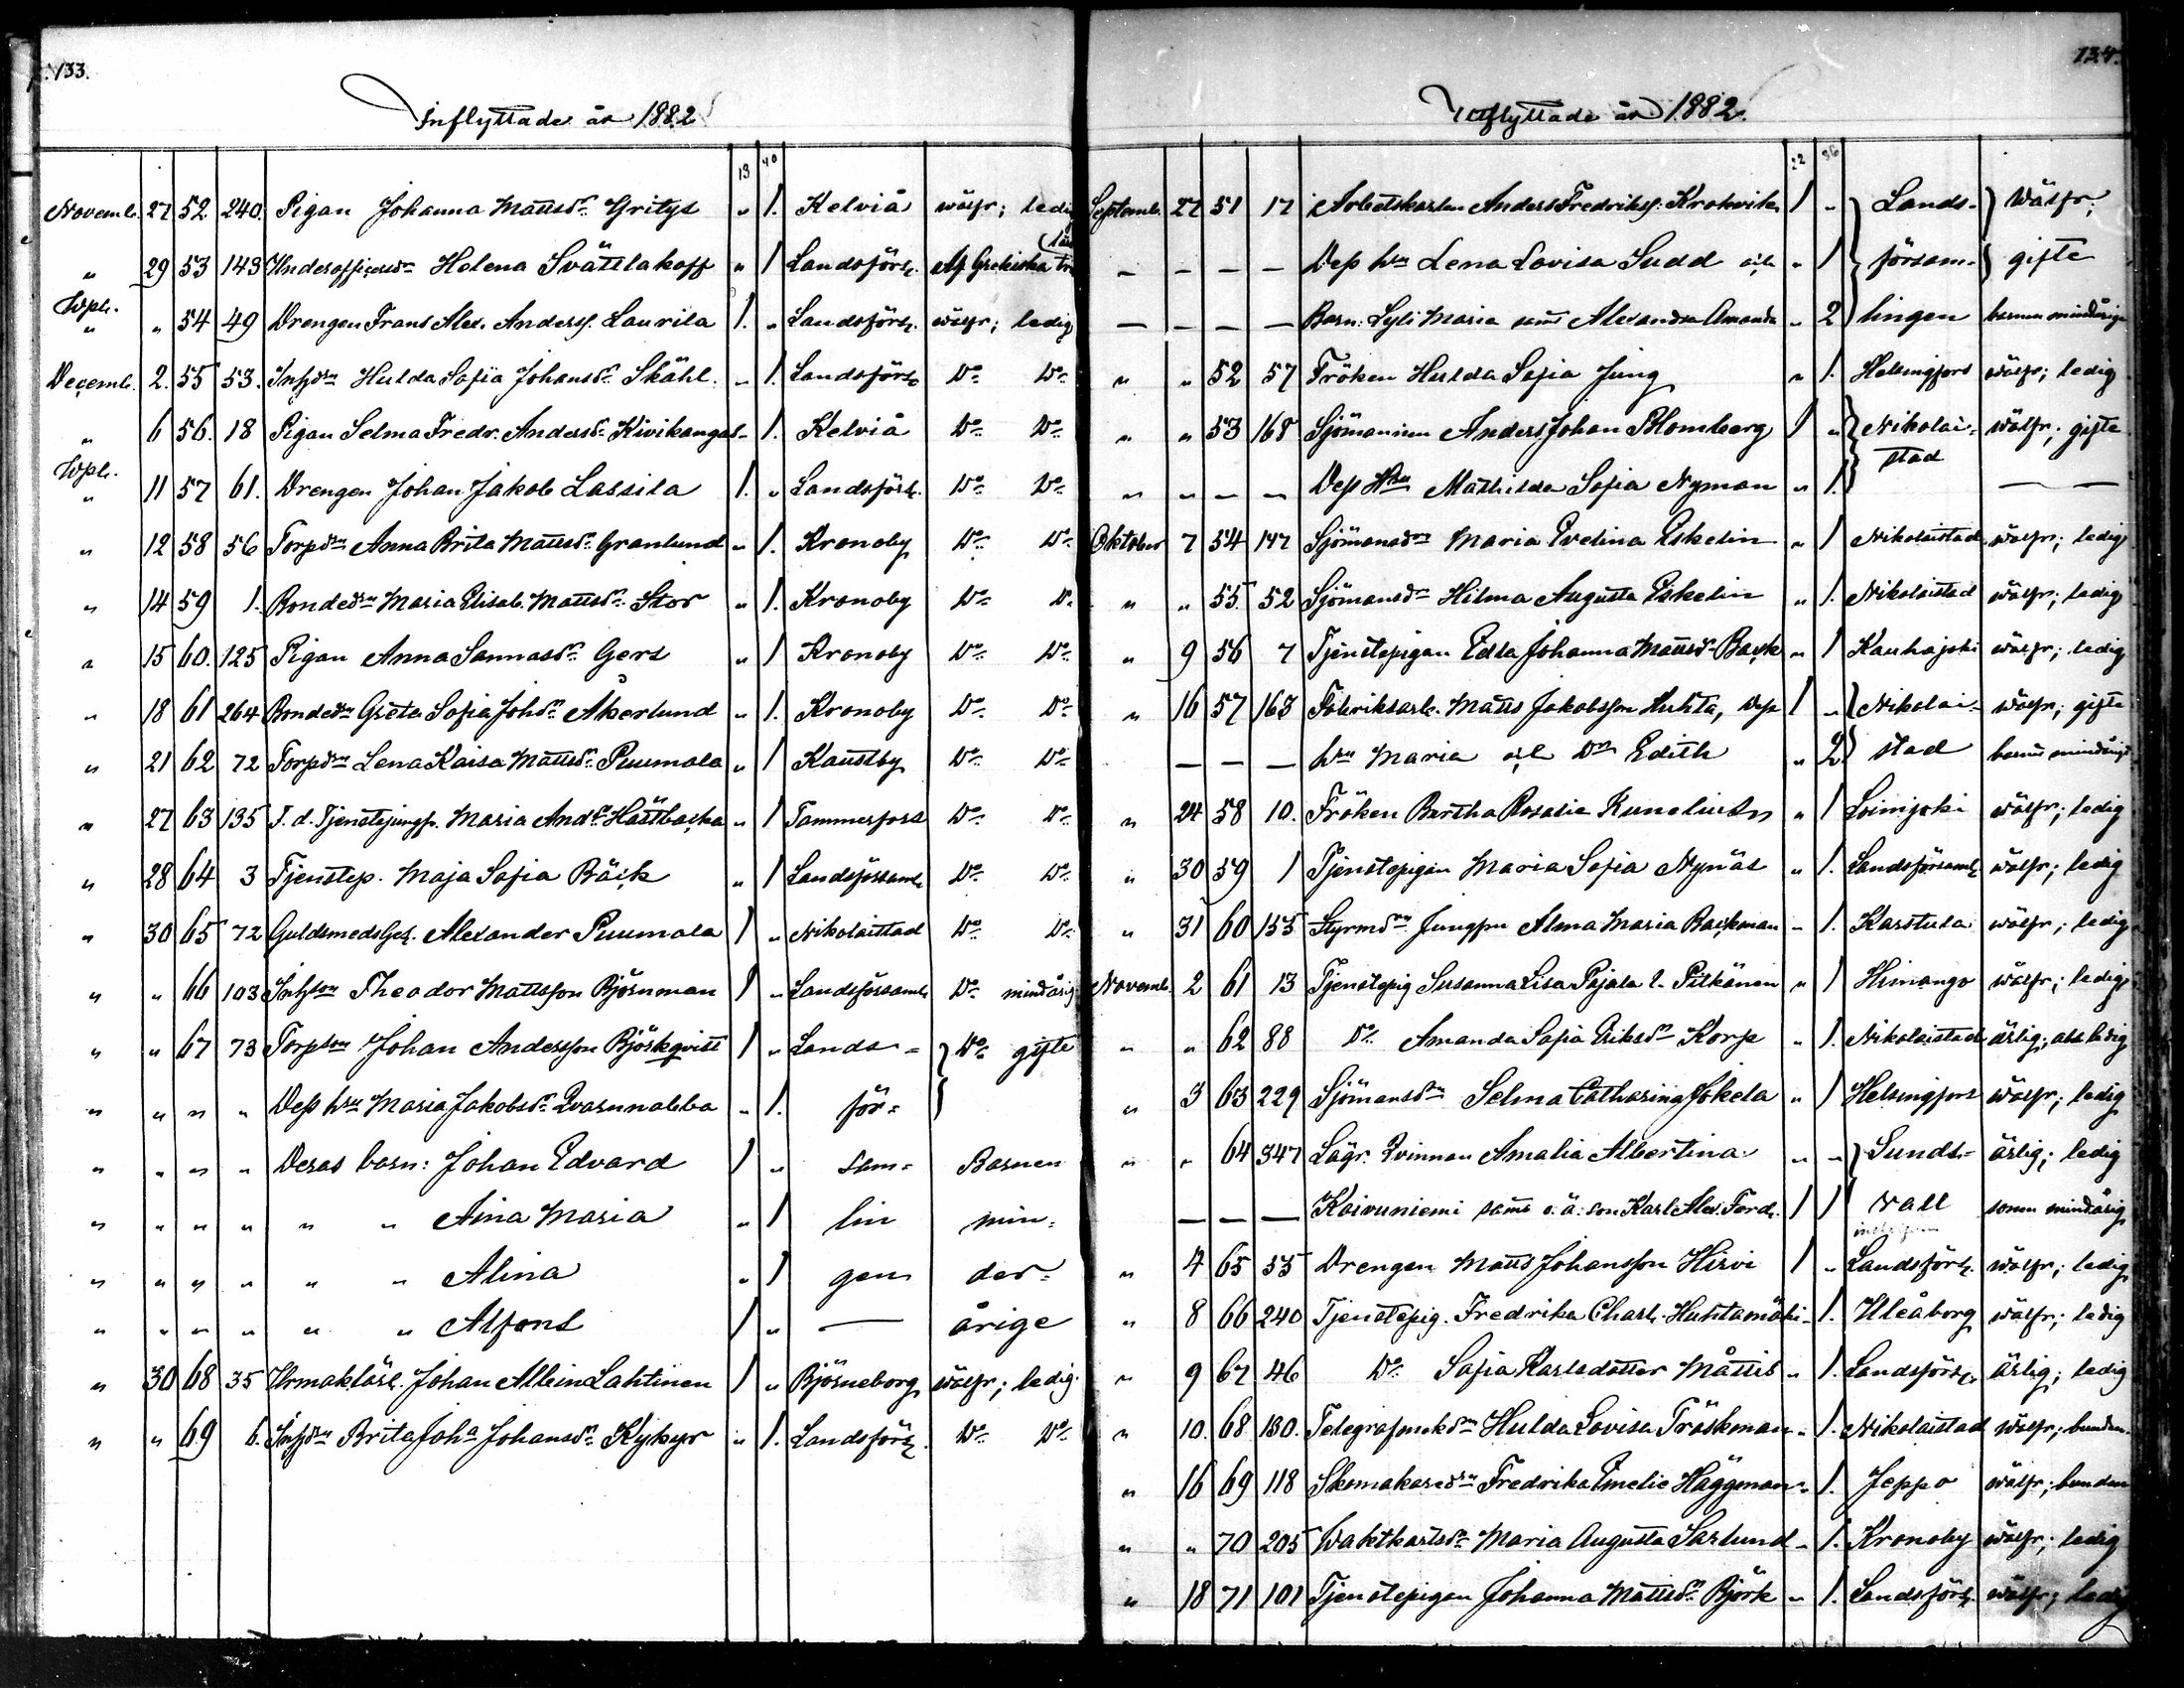 133.
Inflyttade år 1882
13 40
Novemb. 27 52 240. Pigan Johanna Mattsdr Gritys " 1. Kelviå wälfr; ledig
" 29 53 143 Underofficersdr Helena Svättlakoff " 1 Landsförs. Af Grekiska
Wpl. " " 54 49 Drengen Frans Alex. Anderss. Laurila 1. " Landsförs. wälfr; ledig
Decemb. 2. 55 53. Inhdr Hulda Sofia Johansdr Skåhl. " 1. Landsförs. Do Do
" 6 56. 18 Pigan Selma Fredr. Andersdr Kivikangas - 1. Kelviå Do Do
Wpl. " 11 57 61. Drengen Johan Jakob Lassila 1. " Landsförs. Do Do
" 12 58 56 Torpdr Anna Brita Mattsdr Granlund - 1. Kronoby Do Do
" 14 59 1. Bondedr Maria Elisab. Mattsdr Stor " 1. Kronoby Do Do
" 15 60. 125 Pigan Anna Sannasdr Gers " 1 Kronoby Do Do
" 18 61 264 Bondedr Greta Sofia Johdr Åkerlund " 1. Kronoby Do Do
" 21 62 72 Torpdr Lena Kaisa Mattsdr Puumala " 1 Kaustby Do Do
" 27 63 135 F. d. Tjenstejungfr. Maria Anddr Hattbacka " 1 Tammerfors Do Do
" 28 64 3 Tjenstep. Maja Sofia Bäck " 1 Landsförsaml. Do Do
" 30 65 72 Guldsmedsges. Alexander Puumala 1 " Nikolaistad Do Do
" " 66 103 Inhson Theodor Mattsson Björnman 1 " Landsförsaml. Do mindårig
" " 67 73 Torpson Johan Andersson Björkqvist 1 " Lands= Do gifte
" " " " Dess hru Maria Jakobsdr Qvarnnabba " 1. för=
" " " " Deras barn: Johan Edvard 1 " sam= Barnen
" " " " " " Aina Maria " 1 lin min=
" " " " " " Alina " 1 gen der=
" " " " " " Alfons 1 " — årige
" 30 68 35 Urmakläri. Johan Albin Lahtinen 1 " Björneborg wälfr; ledig.
" " 69 6. Inhdr Brita Joha Johansdr Kykyr " 1. Landsförs. Do Do
134.
Utflyttade år 1882.
22 36
Septemb. 27 51 17 Arbetskarlen Anders Fredrikss. Krokvik 1 " Lands- Wälfr;
— — — — Dess hru Lena Lovisa Sudd och " 1 försam- gifte
— — — — Barn: Lyli Maria samt Alexandra Amanda " 2 lingen barnen mindårige
" " 52 57 Fröken Hulda Sofia Jung " 1. Helsingfors wälfr; ledig
" " 53 168 Sjömannen Anders Johan Blomberg 1 " Nikolai- wälfr; gifte
" " — — Dess Hru Mathilda Sofia Nyman " 1. stad — —
Oktober 7 54 147 Sjömansdr Maria Evelina Eskelin " 1 Nikolaistad wälfr; ledig
" " 55. 52 Sjömansdr Hilma Augusta Eskelin " 1. Nikolaistad wälfr; ledig
" 9 56 7 Tjenstepigan Edla Johanna Mattsdr Back " 1 Kauhajoki wälfr; ledig
" 16 57 163 Fabriksarb. Matts Jakobsson Huhta, Dess 1 " Nikolai- wälfr; gifte
— — — hru Maria och Dr Edith " 2 stad barnet mindårigt
" 24 58 10. Fröken Bertha Rosalie Kunelius " 1 Loimijoki wälfr; ledig
" 30 59 1 Tjenstepigan Maria Sofia Nynäs " 1. Landsförsaml. wälfr; ledig
" 31 60 155 Styrmdr Jungfru Alma Maria Backman - 1. Karstula wälfr; ledig
Novemb. 2 61 13 Tjenstepig Susanna Lisa Pajala l. Pitkänen " 1 Himango wälfr; ledig
" " 62 88 Do Amanda Sofia Eriksdr Korp " 1. Nikolaistad ärlig; ledig
" 3 63 229 Sjömansdr Selma Catharina Jokela " 1 Helsingfors wälfr; ledig
" " 64 347 Lägr. Qvinnan Amalia Albertina " " Sunds- ärlig; ledig
— — — Koivuniemi samt o. ä. son Karl Alex. Ferd. 1 1 vall sonen mindårig
" 4 65 55 Drengen Matts Johansson Hirvi 1 " Landsförs. wälfr; ledig
" 8 66 240 Tjenstepig. Fredrika Charl. Huhtamäki - 1. Uleåborg wälfr; ledig
" 9 67 46 Do Sofia Karlsdotter Måttis " 1. Landsförs. ärlig; ledig
" 10. 68 130. Hulda Lovisa Träskman " 1. Nikolaistad wälfr; bunden
" 16 69 118 Skomakaredr Fredrika Emelie Häggman " 1. Jeppo wälfr; bunden
" " 70 205 Waktkarlsdr Maria Augusta Sarlund - 1. Kronoby wälfr; ledig
" 18 71 101 Tjenstepigan Johanna Mattsdr Björk " 1. Landsförs. wälfr; ledig